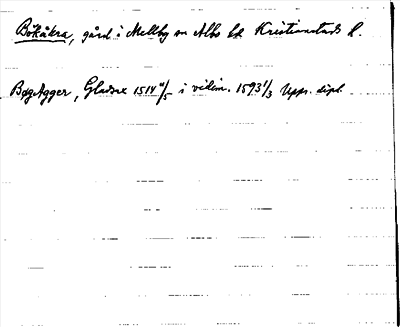 Bökåkra, gård i Mellby sn Albo hd Kristianstads l.
BøgAgger, Gladsax 1514 4/5 i vidim. 1593 1/3 Upps. dipl.